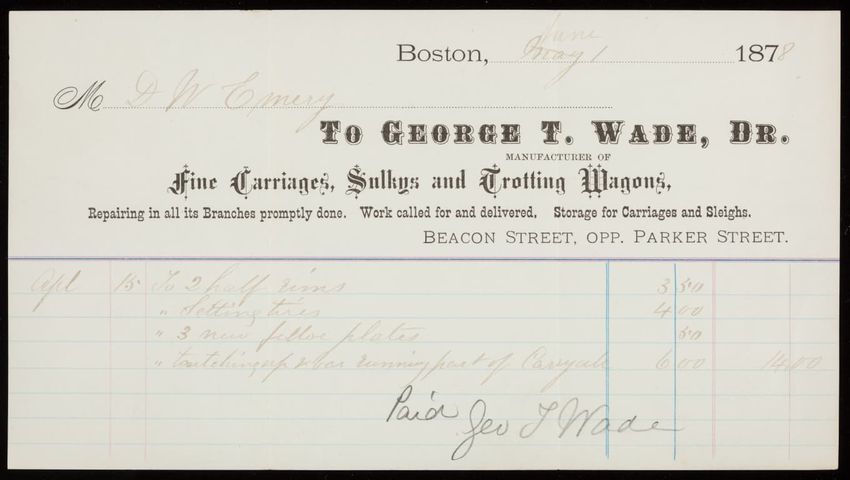 June
Boston, May 1 1878
M D W Emery
To George T. Wade, Dr.
MANUFACTURER OF
Fine Carriages, Sulkys and Trotting Wagons,
Repairing in all its Branches promptly done. Work called for and delivered, Storage for Carriages and Sleighs.
BEACON STREET, OPP. PARKER STREET.
Apl 15 To 2 half rims 3 50
" Setting tires 4 00
" 3 new felloe plates 50
" touching up & var running part of Carryall 6 00 14 00
Paid Geo T Wade